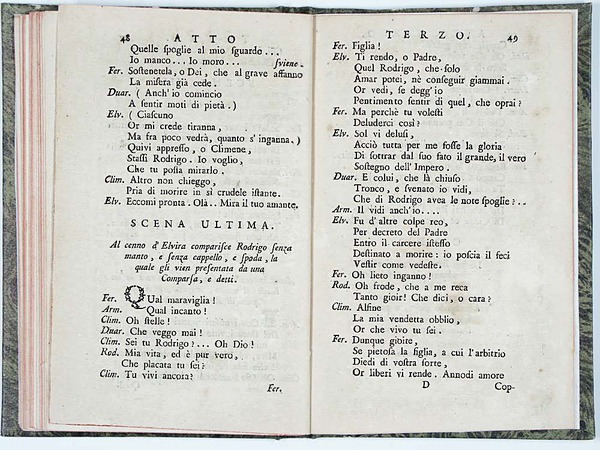 48 ATTO
Quelle ſpoglie al mio ſguardo ...
Io manco... Io moro... ſviene.
Fer. Soſtenetela, o Dei, che al grave affanno
La miſera già cede.
Duar. ( Anch' io comincio
A ſentir moti di pietà. )
Elv. ( Ciaſcuno
Or mi crede tiranna,
Ma fra poco vedrà, quanto s' inganna. )
Quivi appreſſo, o Climene,
Staſſi Rodrigo. Io voglio,
Che tu poſſa mirarlo.
Clim. Altro non chieggo,
Pria di morire in sì crudele iſtante.
Elv. Eccomi pronta. Olà.. Mira il tuo amante.
SCENA ULTIMA.
Al cenno d' Elvira compariſce Rodrigo ſenza
manto, e ſenza cappello, e ſpada, la
quale gli vien preſentata da una
Comparſa, e detti.
Fer. QUal maraviglia!
Arm. Qual incanto!
Clim. Oh ſtelle!
Duar. Che veggo mai!
Clim. Sei tu Rodrigo?... Oh Dio!
Rod. Mia vita, ed è pur vero,
Che placata tu ſei?
Clim. Tu vivi ancora?
Fer.
TERZO. 49
Fer. Figlia!
Elv. Ti rendo, o Padre,
Quel Rodrigo, che ſolo
Amar potei, nè conſeguir giammai.
Or vedi, ſe degg' io
Pentimento ſentir di quel, che oprai?
Fer. Ma perchè tu voleſti
Deluderci così?
Elv. Sol vi deluſi,
Acciò tutta per me foſſe la gloria
Di ſottrar dal ſuo fato il grande, il vero
Soſtegno dell' Impero.
Duar. E colui, che là chiuſo
Tronco, e ſvenato io vidi,
Che di Rodrigo avea le note ſpoglie?..
Arm. Il vidi anch' io....
Elv. Fu d' altre colpe reo,
Per decreto del Padre
Entro il carcere iſteſſo
Deſtinato a morire: io poſcia il feci
Veſtir come vedeſte.
Fer. Oh lieto inganno!
Rod. Oh frode, che a me reca
Tanto gioir! Che dici, o cara?
Clim. Alfine
La mia vendetta obblio,
Or che vivo tu ſei.
Fer. Dunque gioite,
Se pietoſa la figlia, a cui l' arbitrio
Diedi di voſtra ſorte,
Or liberi vi rende. Annodi amore
D Cop-